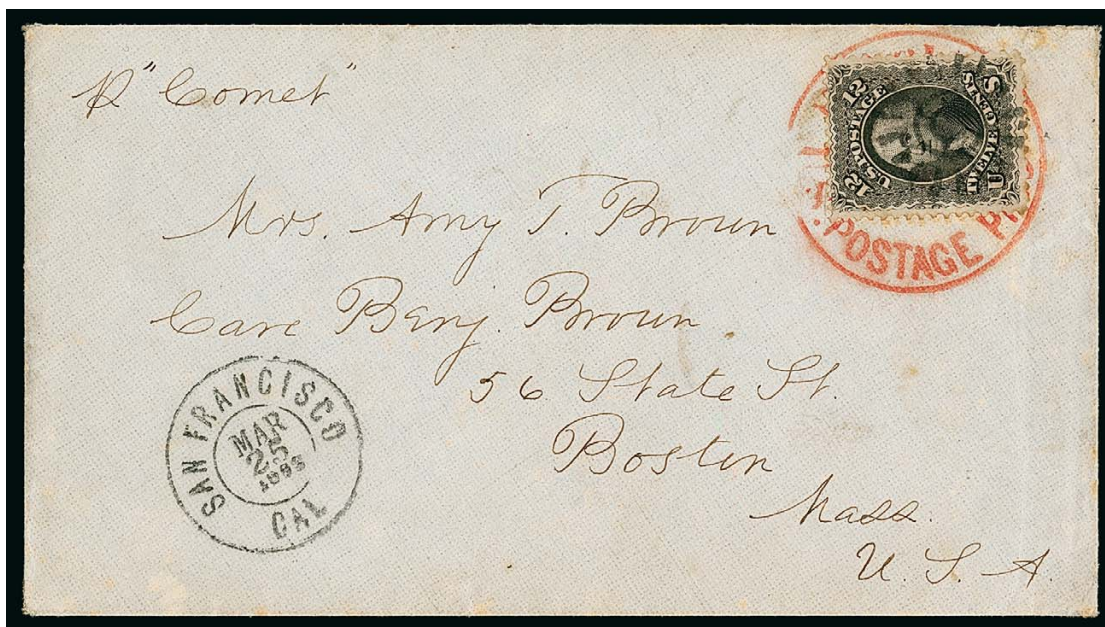 p "Comet"
12 12
U.S. POSTAGE
TWELVE CENTS
U S
POSTAGE
Mrs. Amy T. Brown
Care Benj. Brown
56 State St.
Boston
Mass.
U. S. A.
SAN FRANCISCO
MAR
25
CAL